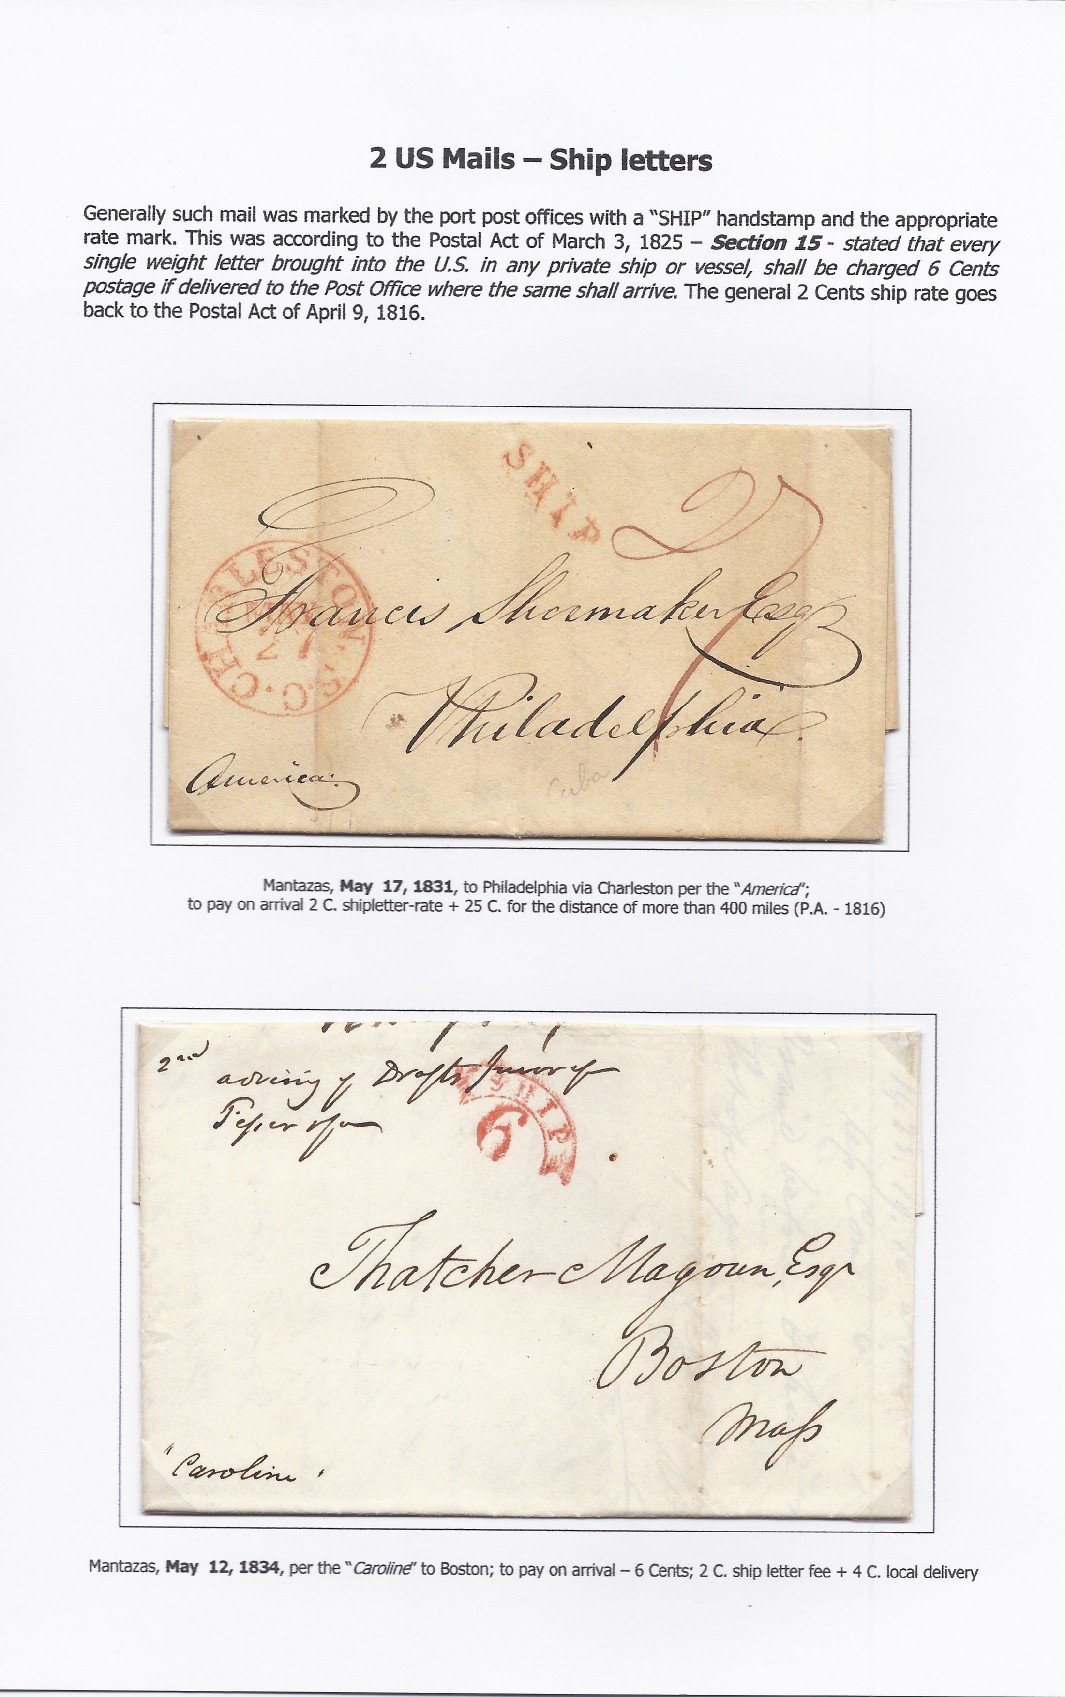 2 US Mails – Ship letters
Generally such mail was marked by the port post offices with a "SHIP" handstamp and the appropriate
rate mark. This was according to the Postal Act of March 3, 1825 – Section 15 - stated that every
single weight letter brought into the U.S. in any private ship or vessel, shall be charged 6 Cents
postage if delivered to the Post Office where the same shall arrive. The general 2 Cents ship rate goes
back to the Postal Act of April 9, 1816.
SHIP
27
CHARLESTON. S.C.
Francis Shoemaker Esqr
Philadelphia.
Cuba
America.
Mantazas, May 17, 1831, to Philadelphia via Charleston per the "America";
to pay on arrival 2 C. shipletter-rate + 25 C. for the distance of more than 400 miles (P.A. - 1816)
2nd
advising of Drafts
SHIP
6
Thatcher Magoun, Esqr
Boston
Mass
"Caroline"
Mantazas, May 12, 1834, per the "Caroline" to Boston; to pay on arrival – 6 Cents; 2 C. ship letter fee + 4 C. local delivery